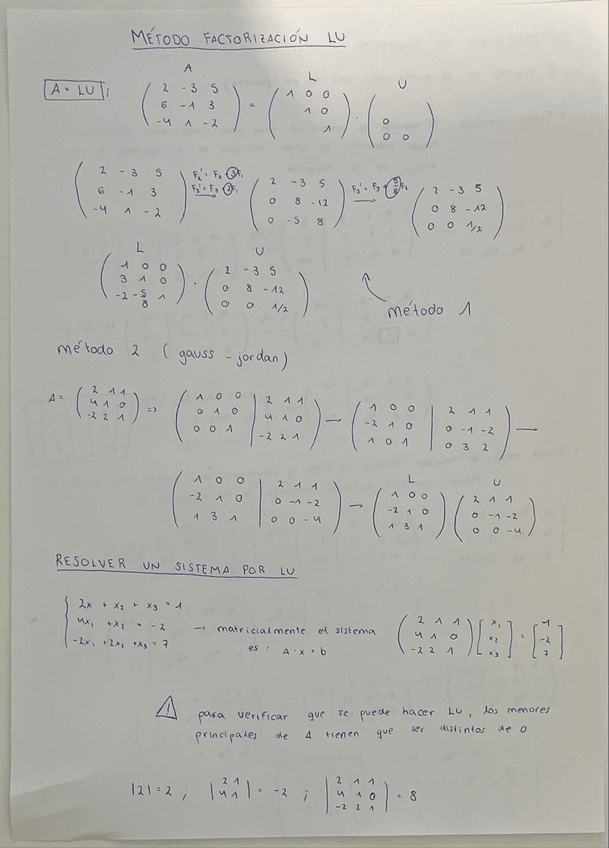 MÉTODO FACTORIZACIÓN LU
A = LU ; A ( 2 -3 5 ; 6 -1 3 ; -4 1 -2 ) = L ( 1 0 0 ; 1 0 ; 1 ) · U ( 0 ; 0 0 )
( 2 -3 5 ; 6 -1 3 ; -4 1 -2 ) F2' = F2 - 3F1 F3' = F3 - 2F1 → ( 2 -3 5 ; 0 8 -12 ; 0 -5 8 ) F3' = F3 + 5/8 F2 → ( 2 -3 5 ; 0 8 -12 ; 0 0 1/2 )
L ( 1 0 0 ; 3 1 0 ; -2 -5/8 1 ) · U ( 2 -3 5 ; 0 8 -12 ; 0 0 1/2 )
método 1
método 2 ( gauss - jordan )
A = ( 2 1 1 ; 4 1 0 ; -2 2 1 ) => ( 1 0 0 | 2 1 1 ; 0 1 0 | 4 1 0 ; 0 0 1 | -2 2 1 ) → ( 1 0 0 | 2 1 1 ; -2 1 0 | 0 -1 -2 ; 1 0 1 | 0 3 2 ) →
( 1 0 0 | 2 1 1 ; -2 1 0 | 0 -1 -2 ; 1 3 1 | 0 0 -4 ) → L ( 1 0 0 ; -2 1 0 ; 1 3 1 ) U ( 2 1 1 ; 0 -1 -2 ; 0 0 -4 )
RESOLVER UN SISTEMA POR LU
2x + x2 + x3 = 1
4x1 + x2 = -2 → matricialmente el sistema ( 2 1 1 ; 4 1 0 ; -2 2 1 ) [ x1 ; x2 ; x3 ] = [ 1 ; -2 ; 7 ]
-2x1 + 2x2 + x3 = 7 es : A · x = b
! para verificar que se puede hacer LU, los menores
principales de A tienen que ser distintos de 0
|2| = 2 ; | 2 1 ; 4 1 | = -2 ; | 2 1 1 ; 4 1 0 ; -2 2 1 | = 8